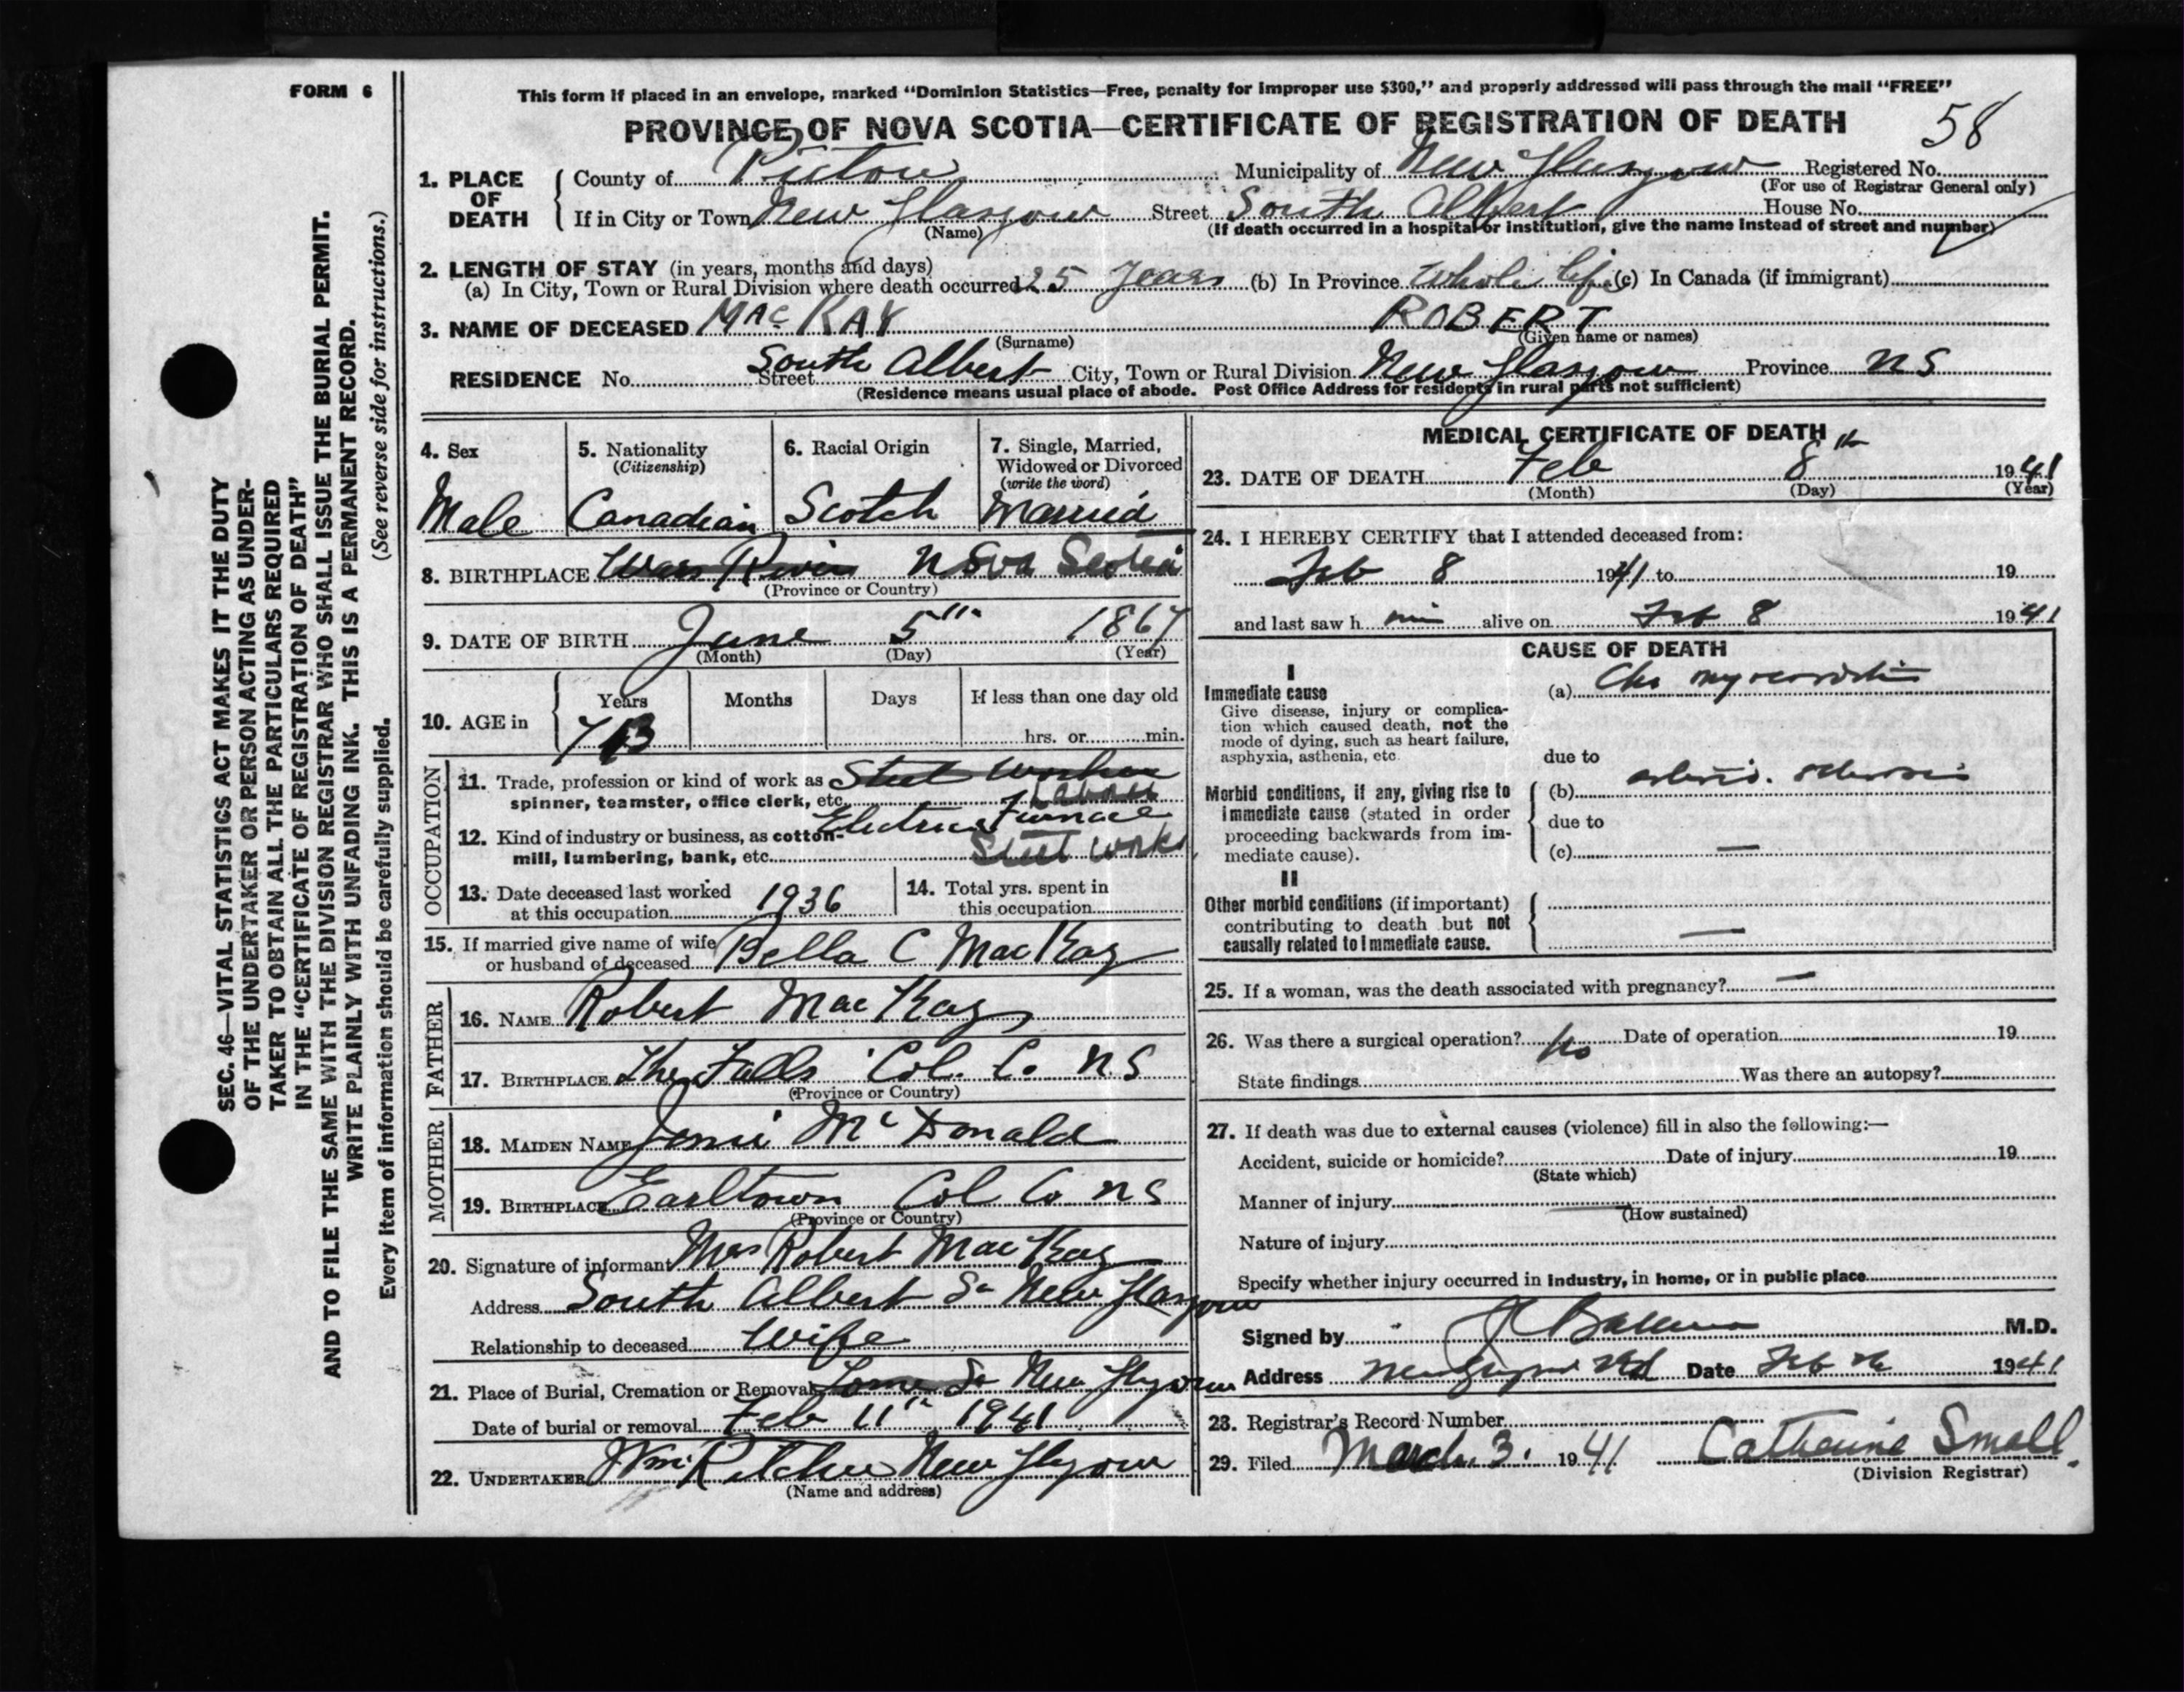 FORM 6
SEC. 46—VITAL STATISTICS ACT MAKES IT THE DUTY
OF THE UNDERTAKER OR PERSON ACTING AS UNDER-
TAKER TO OBTAIN ALL THE PARTICULARS REQUIRED
IN THE "CERTIFICATE OF REGISTRATION OF DEATH"
AND TO FILE THE SAME WITH THE DIVISION REGISTRAR WHO SHALL ISSUE THE BURIAL PERMIT.
WRITE PLAINLY WITH UNFADING INK. THIS IS A PERMANENT RECORD.
Every item of information should be carefully supplied. (See reverse side for instructions.)
This form if placed in an envelope, marked "Dominion Statistics—Free, penalty for improper use $300," and properly addressed will pass through the mail "FREE"
PROVINCE OF NOVA SCOTIA—CERTIFICATE OF REGISTRATION OF DEATH
58
1. PLACE OF DEATH
County of Pictou Municipality of New Glasgow Registered No.
(For use of Registrar General only)
If in City or Town New Glasgow Street South Albert House No.
(Name) (If death occurred in a hospital or institution, give the name instead of street and number)
2. LENGTH OF STAY (in years, months and days)
(a) In City, Town or Rural Division where death occurred 25 Years (b) In Province Whole life (c) In Canada (if immigrant)
3. NAME OF DECEASED MacKAY ROBERT
(Surname) (Given name or names)
RESIDENCE No. Street South Albert City, Town or Rural Division New Glasgow Province NS
(Residence means usual place of abode. Post Office Address for residents in rural parts not sufficient)
4. Sex
Male
5. Nationality
(Citizenship)
Canadian
6. Racial Origin
Scotch
7. Single, Married,
Widowed or Divorced
(write the word)
Married
8. BIRTHPLACE River Nova Scotia
(Province or Country)
9. DATE OF BIRTH June 5th 1867
(Month) (Day) (Year)
10. AGE in
Years Months Days If less than one day old
73 hrs. or min.
OCCUPATION
11. Trade, profession or kind of work as Steel Worker
spinner, teamster, office clerk, etc. Labour
Electric Furnace
12. Kind of industry or business, as cotton-
mill, lumbering, bank, etc. Steel works
13. Date deceased last worked
at this occupation 1936
14. Total yrs. spent in
this occupation
15. If married give name of wife
or husband of deceased Bella C MacKay
FATHER
16. NAME Robert MacKay
17. BIRTHPLACE The Falls Col. Co. N.S
(Province or Country)
MOTHER
18. MAIDEN NAME McDonald
19. BIRTHPLACE Earltown Col Co NS
(Province or Country)
20. Signature of informant Mrs Robert MacKay
Address South Albert St New Glasgow
Relationship to deceased Wife
21. Place of Burial, Cremation or Removal New Glasgow
Date of burial or removal Feb 11th 1941
22. UNDERTAKER New Glasgow
(Name and address)
MEDICAL CERTIFICATE OF DEATH
23. DATE OF DEATH Feb 8th 1941
(Month) (Day) (Year)
24. I HEREBY CERTIFY that I attended deceased from:
Feb 8 1941 to 19
and last saw him alive on Feb 8 1941
CAUSE OF DEATH
I
Immediate cause
Give disease, injury or complica-
tion which caused death, not the
mode of dying, such as heart failure,
asphyxia, asthenia, etc.
(a) Chr myocarditis
due to
Morbid conditions, if any, giving rise to
immediate cause (stated in order
proceeding backwards from im-
mediate cause).
(b) arterio. sclerosis
due to
(c) —
II
Other morbid conditions (if important)
contributing to death but not
causally related to immediate cause. —
25. If a woman, was the death associated with pregnancy? —
26. Was there a surgical operation? No Date of operation 19
State findings Was there an autopsy?
27. If death was due to external causes (violence) fill in also the following:—
Accident, suicide or homicide? Date of injury 19
(State which)
Manner of injury
(How sustained)
Nature of injury
Specify whether injury occurred in industry, in home, or in public place
Signed by M.D.
Address Date Feb 1941
28. Registrar's Record Number
29. Filed March 3. 1941 Catherine Small.
(Division Registrar)